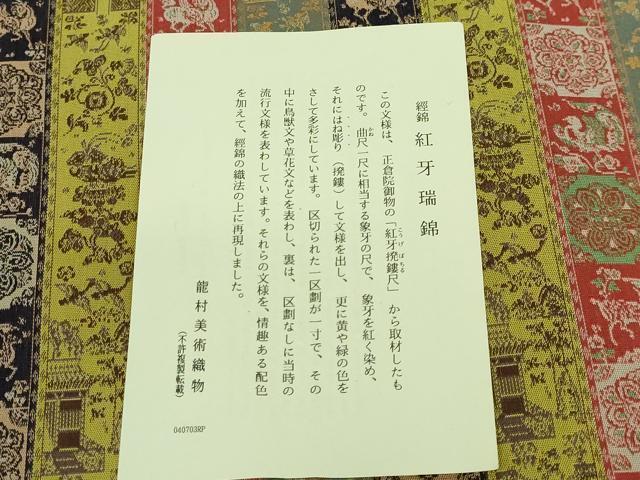 經錦 紅牙瑞錦
この文様は、正倉院御物の「紅牙撥鏤尺」から取材したも
こうげばちる
のです。曲尺一尺に相当する象牙の尺で、象牙を紅く染め、
かね
それにはね彫り（撥鏤）して文様を出し、更に黄や緑の色を
さして多彩にしています。区切られた一区劃が一寸で、その
中に鳥獣文や草花文などを表わし、裏は、区劃なしに当時の
流行文様を表わしています。それらの文様を、情趣ある配色
を加えて、經錦の織法の上に再現しました。
龍村美術織物
（不許複製転載）
040703RP